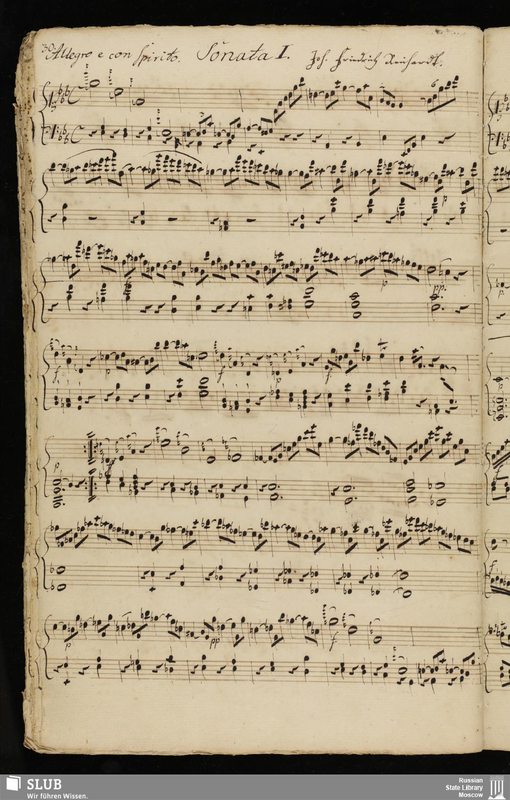 30 Allegro e con Spirito. Soñata I. Joh. Friedrich Reinhardt.
f
p
pp
SLUB
Wir führen Wissen.
Russian
State Library
Moscow